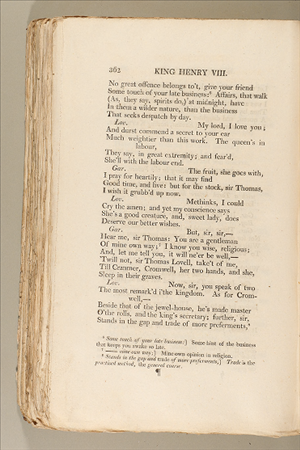 362 KING HENRY VIII.
No great offence belongs to't, give your friend
Some touch of your late business:⁶ Affairs, that walk
(As, they say, spirits do,) at midnight, have
In them a wilder nature, than the business
That seeks despatch by day.
Lov. My lord, I love you;
And durst commend a secret to your ear
Much weightier than this work. The queen's in
labour,
They say, in great extremity; and fear'd,
She'll with the labour end.
Gar. The fruit, she goes with,
I pray for heartily; that it may find
Good time, and live: but for the stock, sir Thomas,
I wish it grubb'd up now.
Lov. Methinks, I could
Cry the amen; and yet my conscience says
She's a good creature, and, sweet lady, does
Deserve our better wishes.
Gar. But, sir, sir,—
Hear me, sir Thomas: You are a gentleman
Of mine own way;⁷ I know you wise, religious;
And, let me tell you, it will ne'er be well,—
'Twill not, sir Thomas Lovell, take't of me,
Till Cranmer, Cromwell, her two hands, and she,
Sleep in their graves.
Lov. Now, sir, you speak of two
The most remark'd i'the kingdom. As for Crom-
well,—
Beside that of the jewel-house, he's made master
O'the rolls, and the king's secretary; further, sir,
Stands in the gap and trade of more preferments,⁸
⁶ Some touch of your late business:] Some hint of the business
that keeps you awake so late.
⁷ —— mine own way;] Mine own opinion in religion.
⁸ Stands in the gap and trade of more preferments,] Trade is the
practised method, the general course.